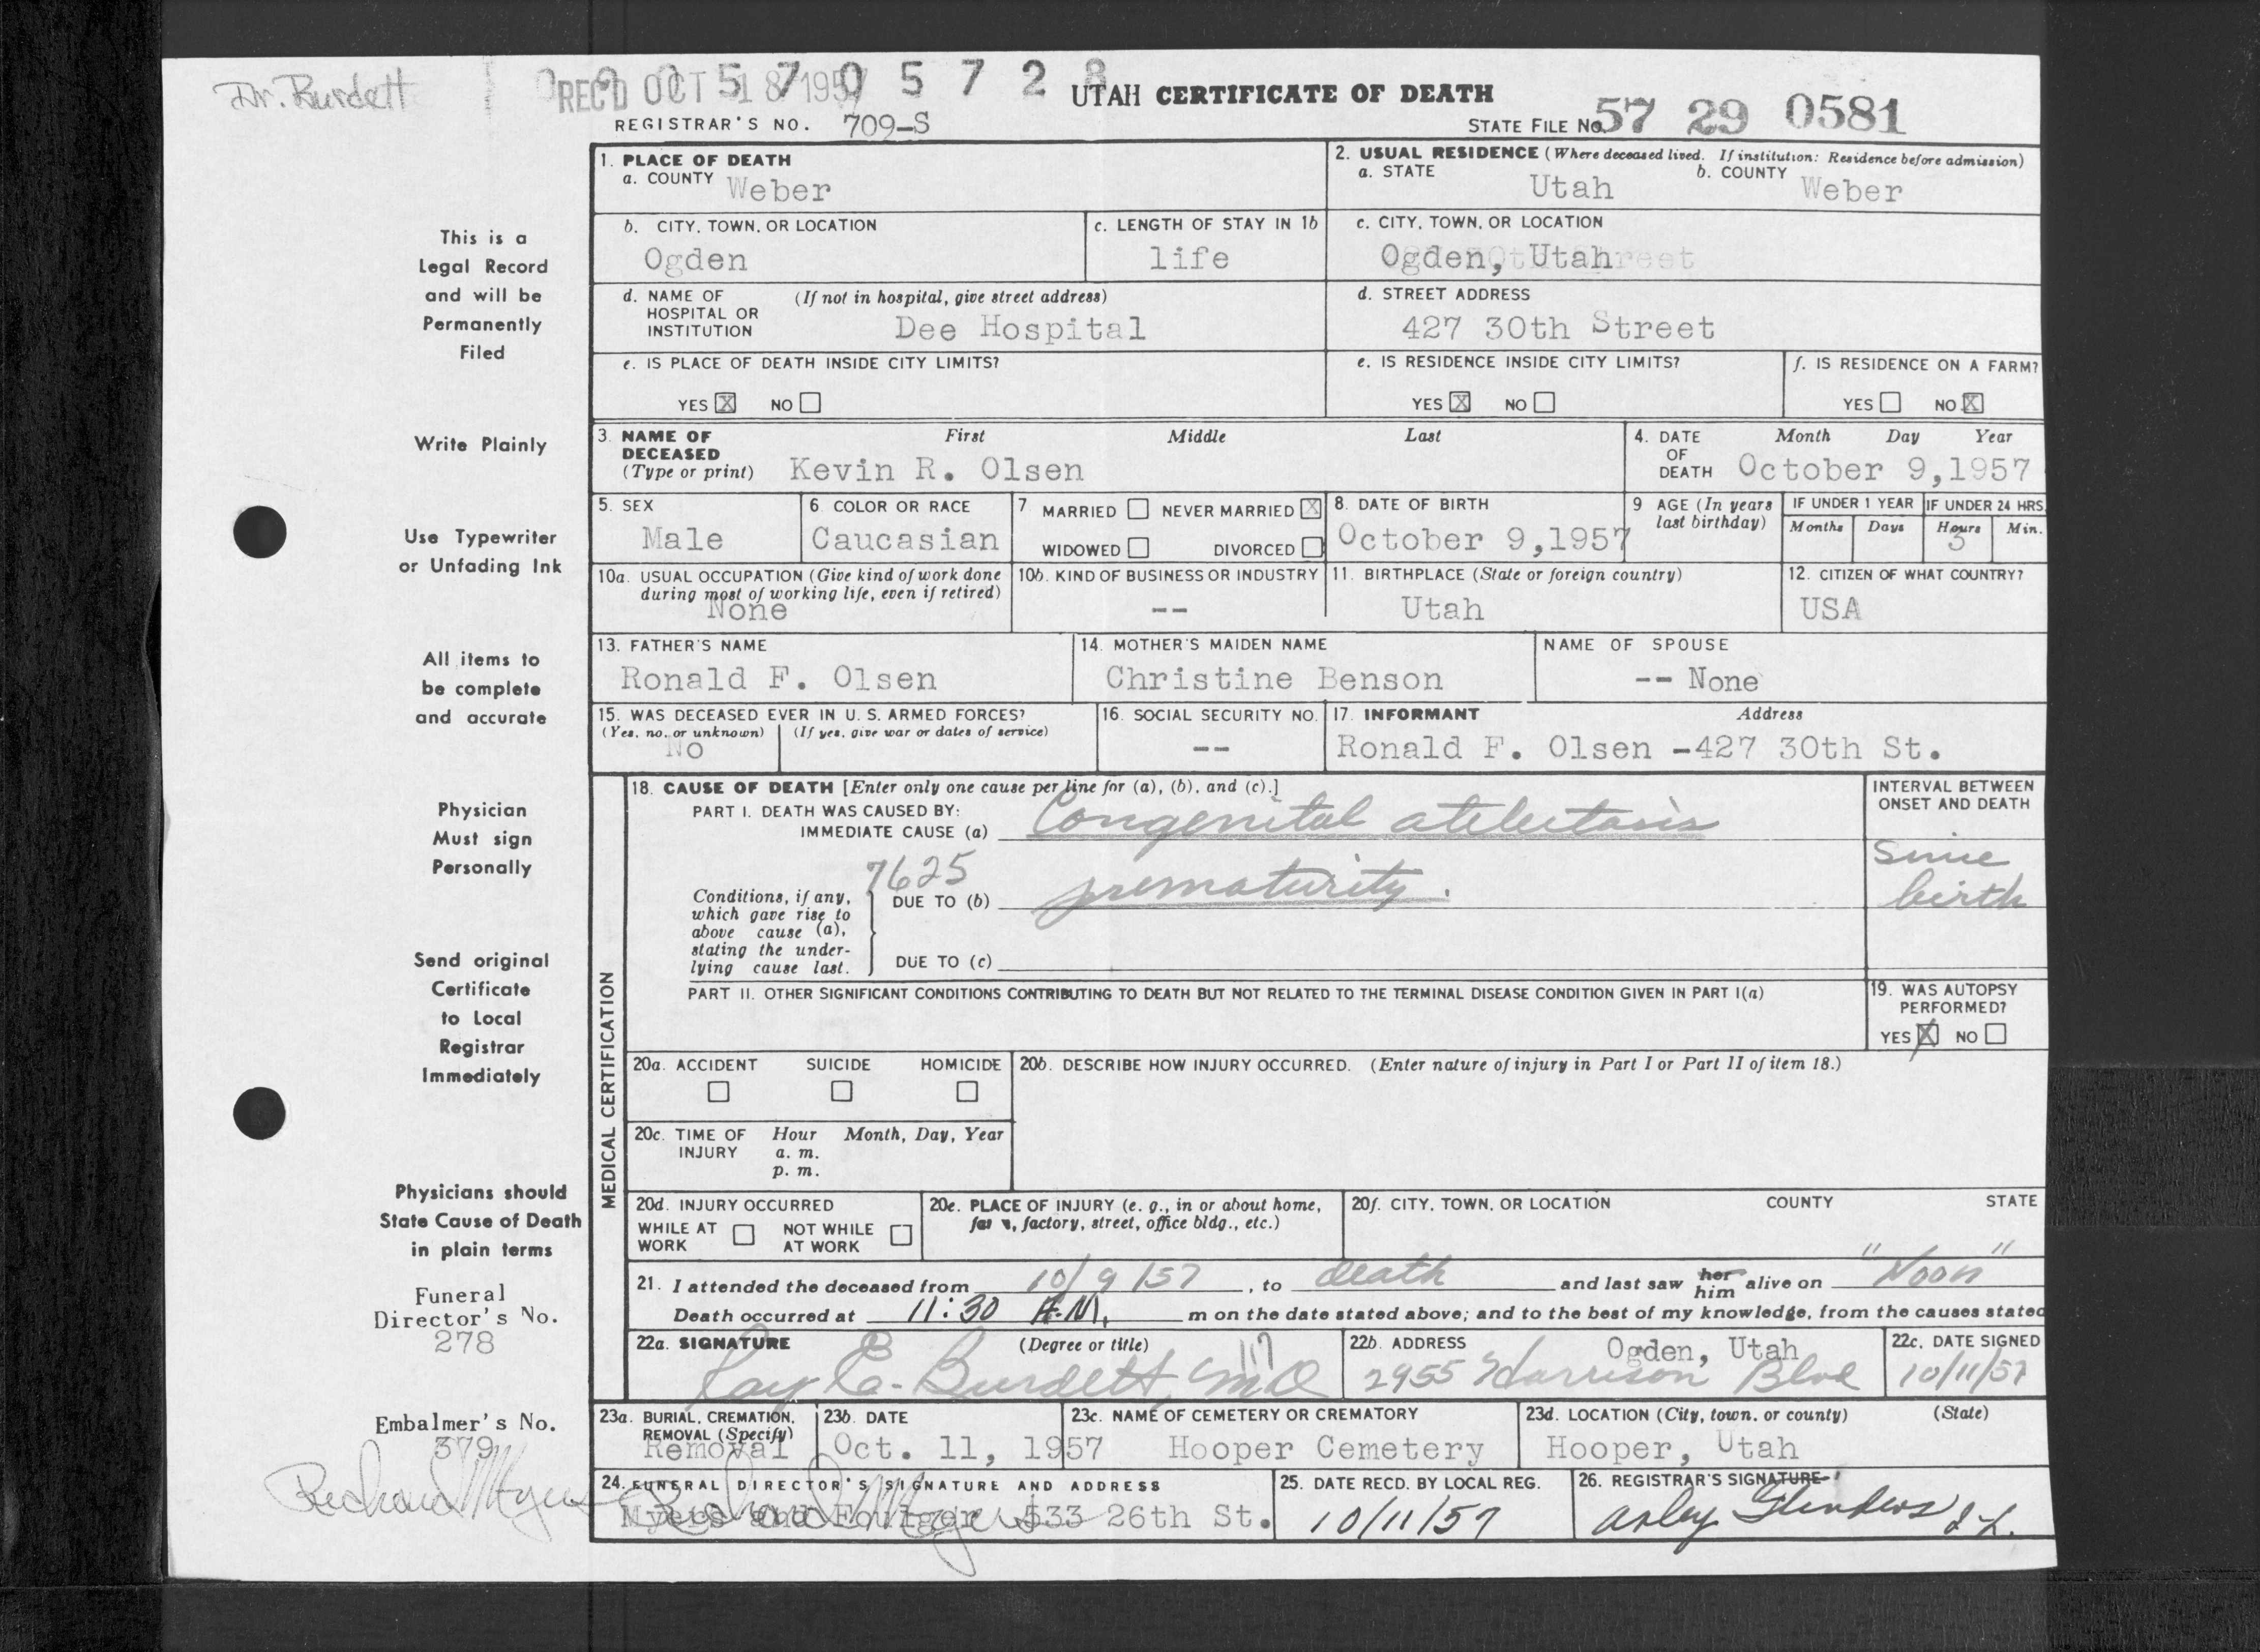 Dr. Burdett
REC'D OCT 18 1957
5 7 0 5 7 2 8
UTAH CERTIFICATE OF DEATH
REGISTRAR'S NO. 709-S
STATE FILE NO. 57 29 0581
1. PLACE OF DEATH
a. COUNTY Weber
2. USUAL RESIDENCE (Where deceased lived. If institution: Residence before admission)
a. STATE Utah b. COUNTY Weber
This is a
Legal Record
and will be
Permanently
Filed
b. CITY, TOWN, OR LOCATION
Ogden
c. LENGTH OF STAY IN 1b
life
c. CITY, TOWN, OR LOCATION
Ogden, Utah
d. NAME OF HOSPITAL OR INSTITUTION (If not in hospital, give street address)
Dee Hospital
d. STREET ADDRESS
427 30th Street
e. IS PLACE OF DEATH INSIDE CITY LIMITS?
YES X NO
e. IS RESIDENCE INSIDE CITY LIMITS?
YES X NO
f. IS RESIDENCE ON A FARM?
YES NO X
Write Plainly
3. NAME OF DECEASED (Type or print) First Middle Last
Kevin R. Olsen
4. DATE OF DEATH Month Day Year
October 9,1957
Use Typewriter
or Unfading Ink
5. SEX
Male
6. COLOR OR RACE
Caucasian
7 MARRIED NEVER MARRIED X
WIDOWED DIVORCED
8. DATE OF BIRTH
October 9,1957
9 AGE (In years last birthday)
IF UNDER 1 YEAR
Months Days
IF UNDER 24 HRS
Hours Min.
3
10a. USUAL OCCUPATION (Give kind of work done during most of working life, even if retired)
None
10b. KIND OF BUSINESS OR INDUSTRY
--
11. BIRTHPLACE (State or foreign country)
Utah
12. CITIZEN OF WHAT COUNTRY?
USA
All items to
be complete
and accurate
13. FATHER'S NAME
Ronald F. Olsen
14. MOTHER'S MAIDEN NAME
Christine Benson
NAME OF SPOUSE
-- None
15. WAS DECEASED EVER IN U. S. ARMED FORCES?
(Yes, no, or unknown) (If yes, give war or dates of service)
No
16. SOCIAL SECURITY NO.
--
17. INFORMANT Address
Ronald F. Olsen -427 30th St.
Physician
Must sign
Personally
MEDICAL CERTIFICATION
18. CAUSE OF DEATH [Enter only one cause per line for (a), (b), and (c).]
PART I. DEATH WAS CAUSED BY:
IMMEDIATE CAUSE (a) Congenital atelectasis
7625
Conditions, if any, which gave rise to above cause (a), stating the underlying cause last.
DUE TO (b) prematurity.
DUE TO (c)
INTERVAL BETWEEN
ONSET AND DEATH
Since
birth
Send original
Certificate
to Local
Registrar
Immediately
PART II. OTHER SIGNIFICANT CONDITIONS CONTRIBUTING TO DEATH BUT NOT RELATED TO THE TERMINAL DISEASE CONDITION GIVEN IN PART I(a)
19. WAS AUTOPSY PERFORMED?
YES X NO
20a. ACCIDENT SUICIDE HOMICIDE
20b. DESCRIBE HOW INJURY OCCURRED. (Enter nature of injury in Part I or Part II of item 18.)
20c. TIME OF INJURY Hour Month, Day, Year
a. m.
p. m.
Physicians should
State Cause of Death
in plain terms
20d. INJURY OCCURRED
WHILE AT WORK NOT WHILE AT WORK
20e. PLACE OF INJURY (e. g., in or about home, farm, factory, street, office bldg., etc.)
20f. CITY, TOWN, OR LOCATION COUNTY STATE
21. I attended the deceased from 10/9/57, to death and last saw her him alive on "Noon"
Death occurred at 11:30 A.M. m on the date stated above; and to the best of my knowledge, from the causes stated
Funeral
Director's No.
278
22a. SIGNATURE (Degree or title)
Ray E. Burdett, MD
22b. ADDRESS Ogden, Utah
2955 Harrison Blvd
22c. DATE SIGNED
10/11/57
Embalmer's No.
379
Richard Myers
23a. BURIAL, CREMATION, REMOVAL (Specify)
Removal
23b. DATE
Oct. 11, 1957
23c. NAME OF CEMETERY OR CREMATORY
Hooper Cemetery
23d. LOCATION (City, town, or county) (State)
Hooper, Utah
24. FUNERAL DIRECTOR'S SIGNATURE AND ADDRESS
Myers and Foulger 533 26th St.
Richard Myers
25. DATE RECD. BY LOCAL REG.
10/11/57
26. REGISTRAR'S SIGNATURE